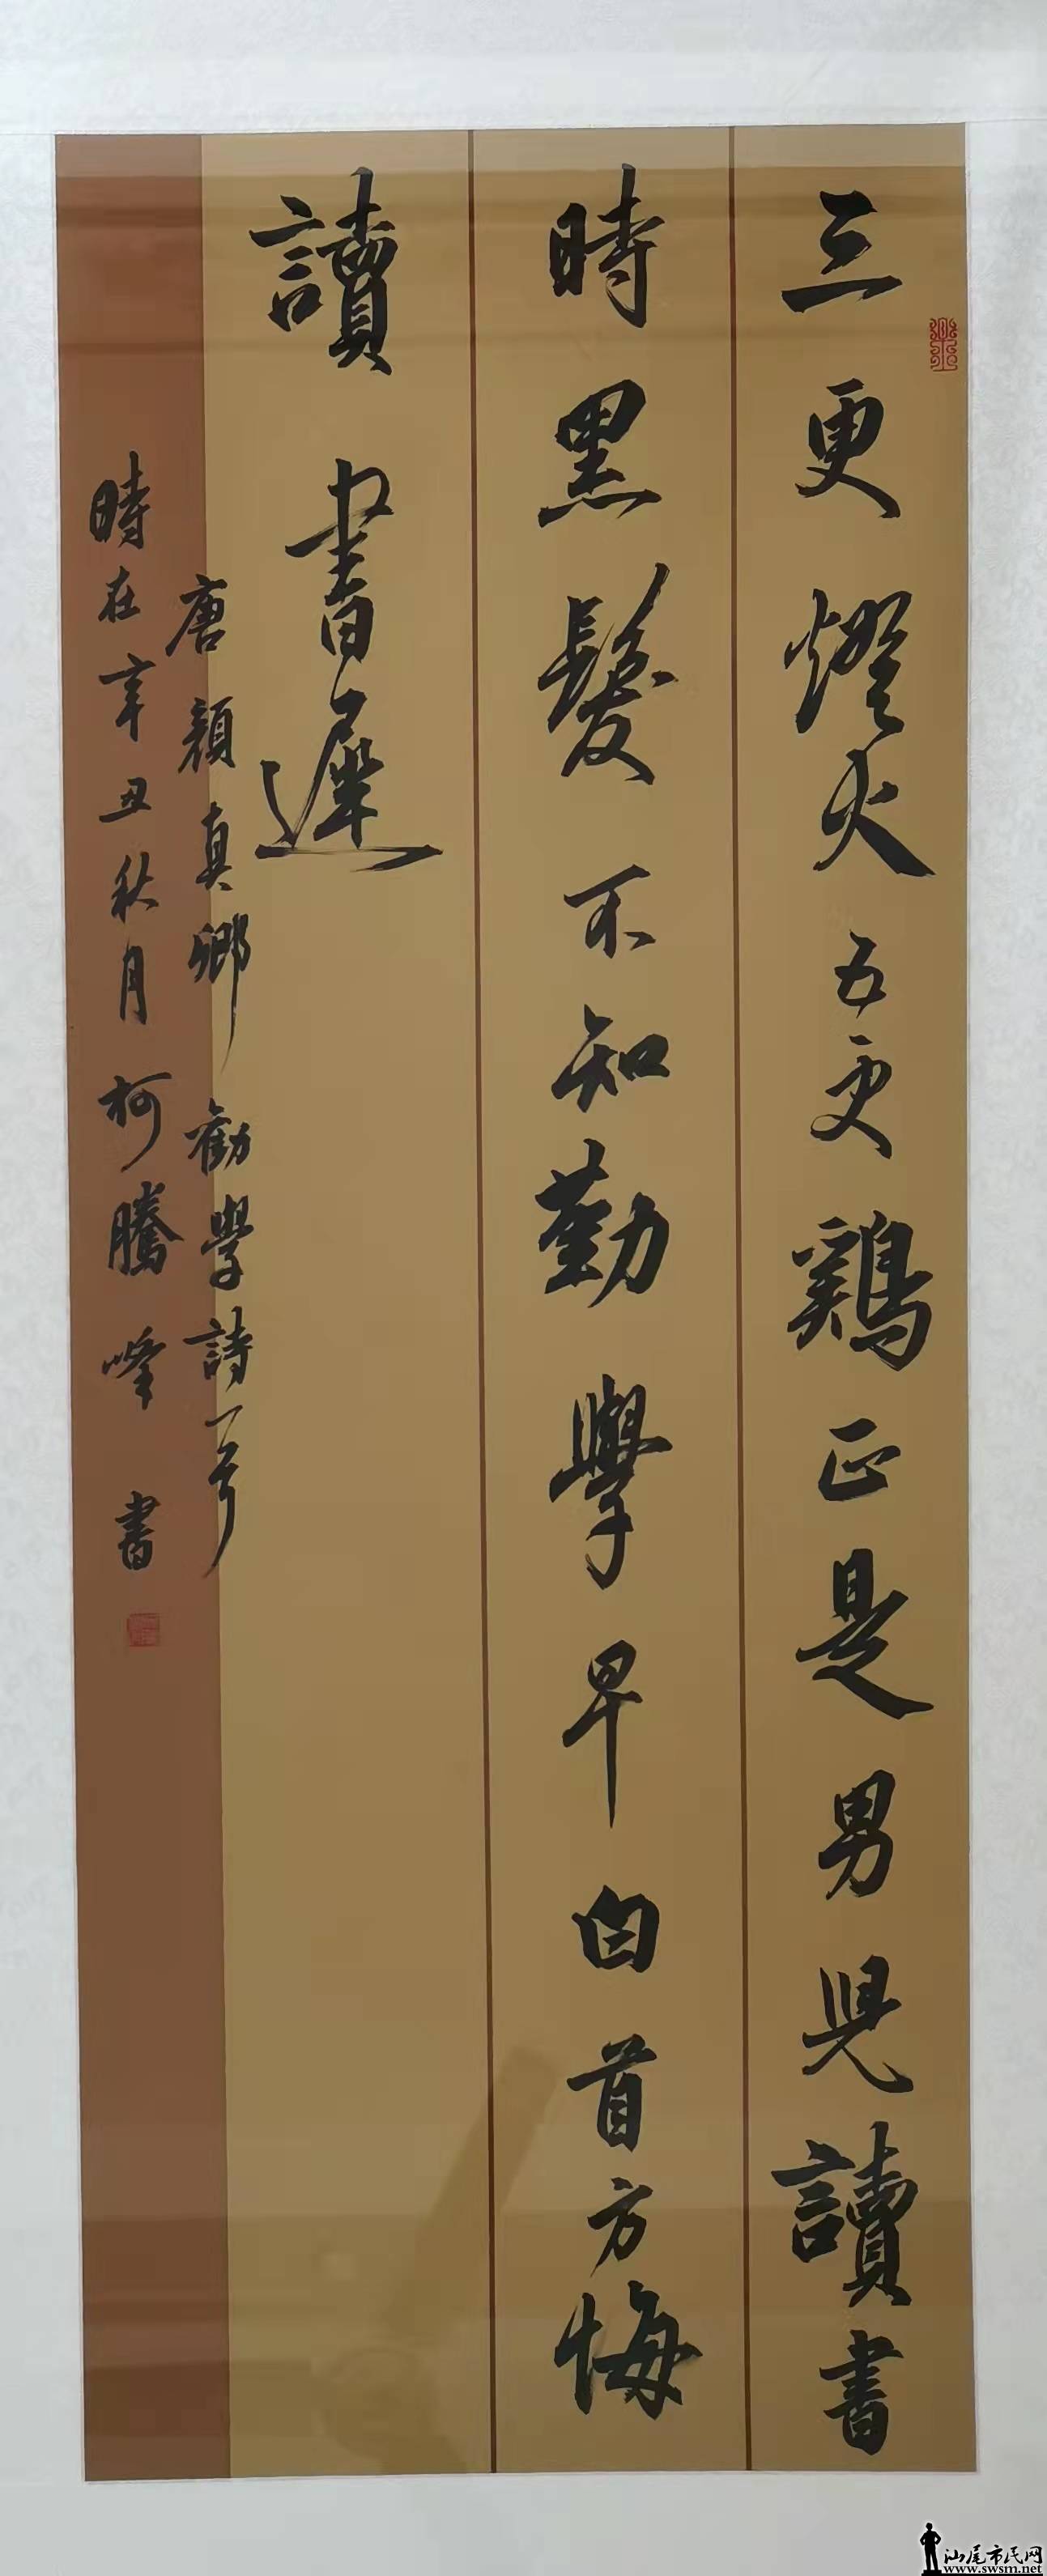 三更燈火五更鷄正是男児讀書
時黒髮不知勤學早白首方悔
讀書遲
唐顔真卿勸學詩一首
時在辛丑秋月柯騰峰書
汕尾市民网
www.swsm.net